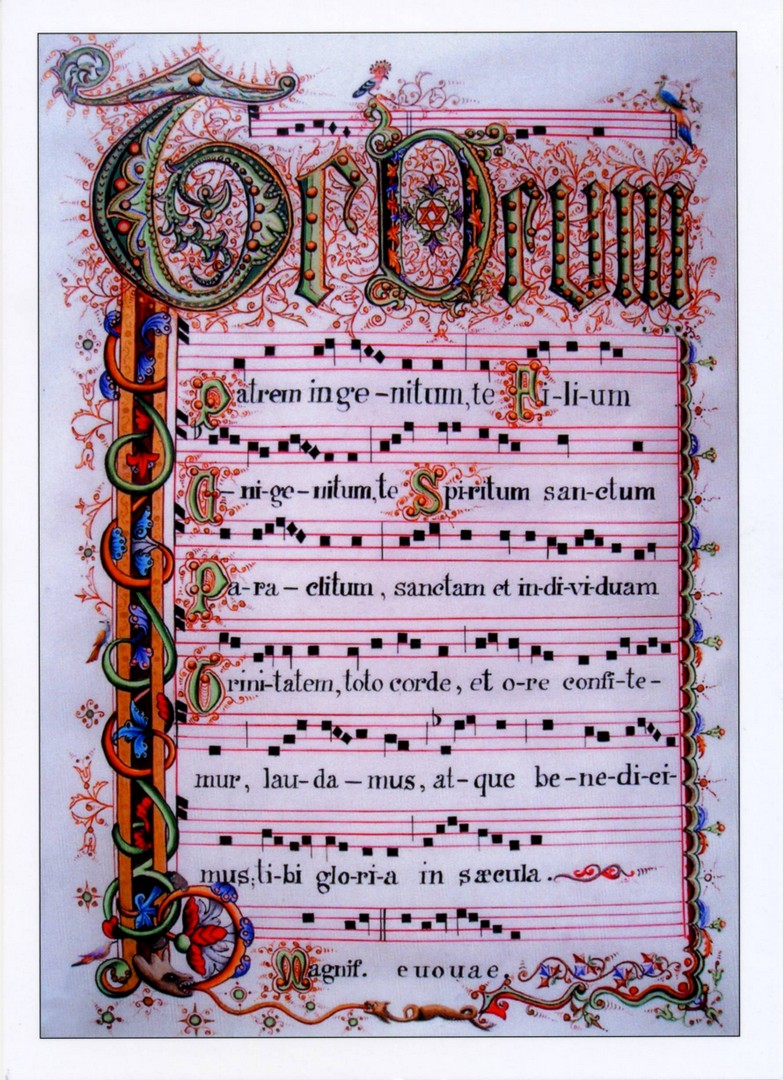 Te Deum
Patrem inge-nitum, te Fi-li-um
U-ni-ge-nitum, te Spi-ritum san-ctum
Pa-ra-clitum, sanctam et in-di-vi-duam
Trini-tatem, toto corde, et o-re confi-te-
mur, lau-da-mus, at-que be-ne-di-ci-
mus; ti-bi glo-ri-a in sæcula.
Magnif. euouae.